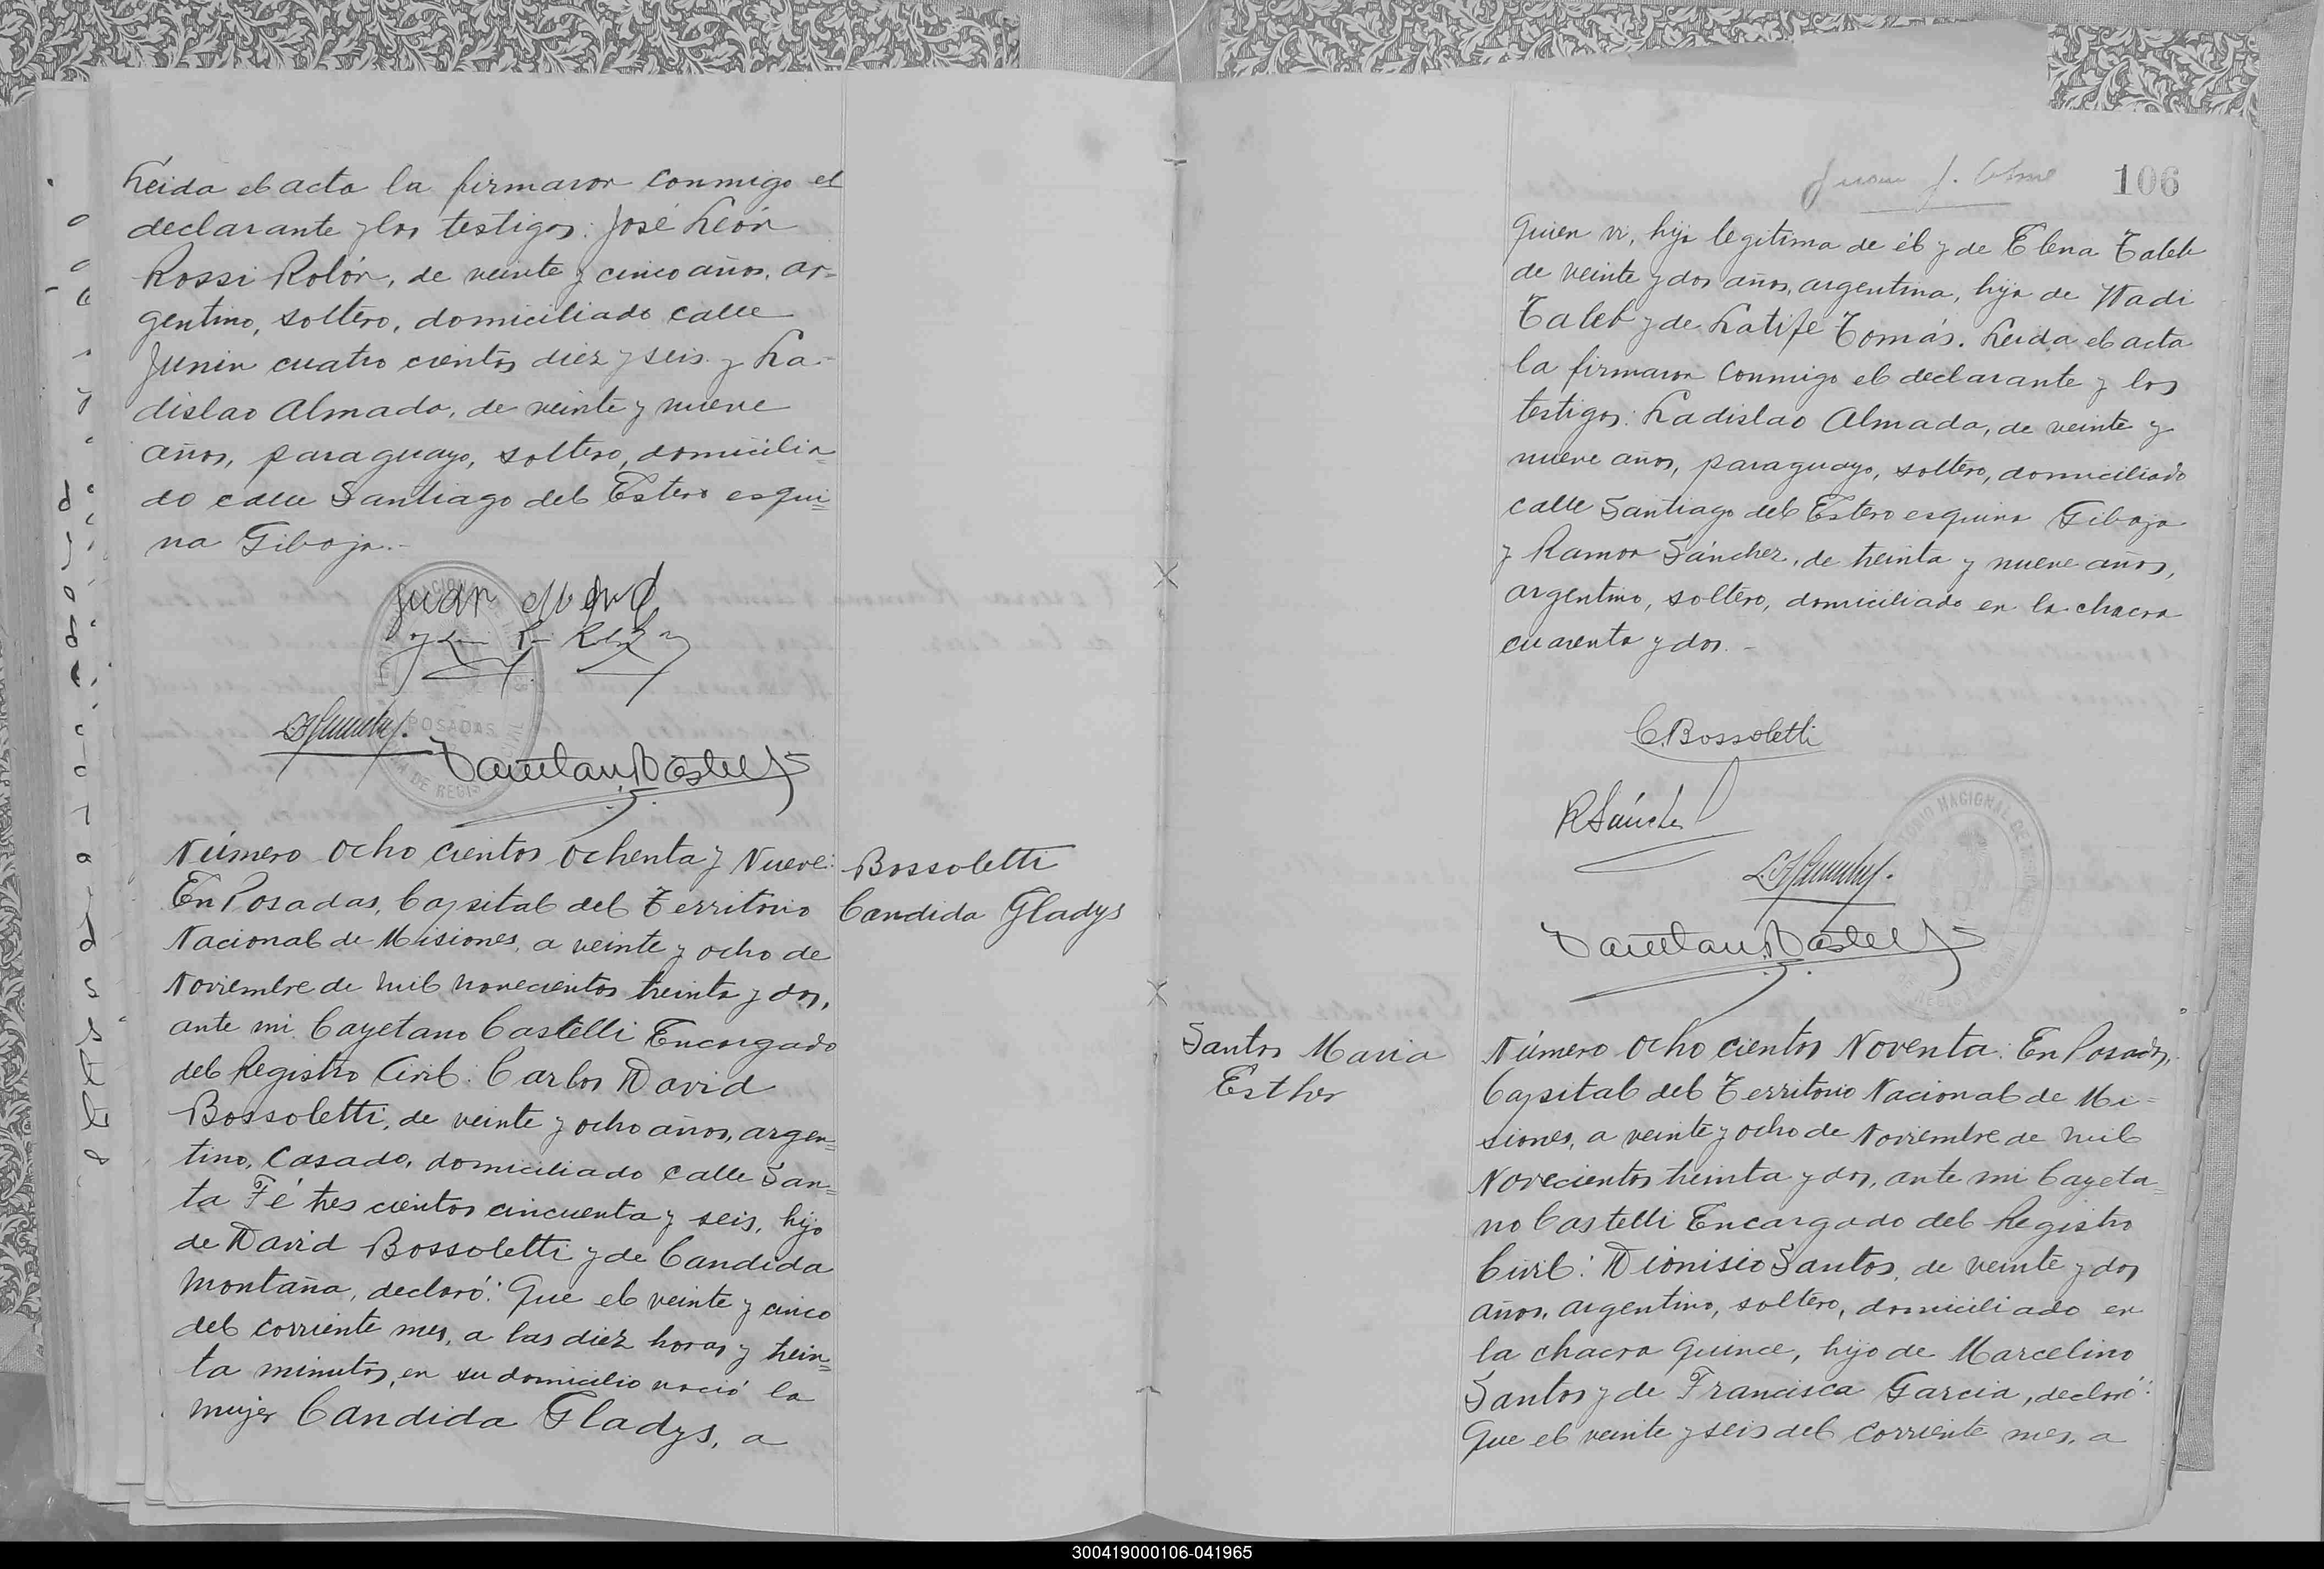 Leida el acta la firmaron conmigo el
declarante y los testigos: José León
Rossi Rolón, de veinte y cinco años, ar=
gentino, soltero, domiciliado calle
Junin cuatro cientos diez y seis y La-
dislao Almada, de veinte y nueve
años, paraguayo, soltero, domicilia=
do calle Santiago del Estero esqui=
na Giboja.-
Juan
POSADAS
Número Ocho cientos Ochenta y Nueve:
En Posadas, Capital del Territorio
Nacional de Misiones, a veinte y ocho de
Noviembre de mil novecientos treinta y dos,
ante mi Cayetano Castelli Encargado
del Registro Civil: Carlos David
Bossoletti, de veinte y ocho años, argen=
tino, casado, domiciliado calle San=
ta Fé tres cientos cincuenta y seis, hijo
de David Bossoletti y de Candida
Montaña, declaró: Que el veinte y cinco
del corriente mes, a las diez horas y trein=
ta minutos, en su domicilio nació la
mujer Candida Gladys, a
Bossoletti
Candida Gladys
106
quien vi, hija legitima de él y de Elena Taleb
de veinte y dos años, argentina, hija de Wadi
Taleb y de Latife Tomás. Leida el acta
la firmaron conmigo el declarante y los
testigos: Ladislao Almada, de veinte y
nueve años, paraguayo, soltero, domiciliado
calle Santiago del Estero esquina Giboja
y Ramon Sánchez, de treinta y nueve años,
argentino, soltero, domiciliado en la chacra
cuarenta y dos.-
C. Bossoletti
R Sánchez
Santos Maria
Esther
Número Ocho cientos Noventa: En Posadas,
Capital del Territorio Nacional de Mi=
siones, a veinte y ocho de Noviembre de mil
Novecientos treinta y dos, ante mi Cayeta=
no Castelli Encargado del Registro
Civil: Dionisio Santos, de veinte y dos
años, argentino, soltero, domiciliado en
la chacra quince, hijo de Marcelino
Santos y de Francisca Garcia, declaró:
Que el veinte y seis del corriente mes, a
300419000106-041965